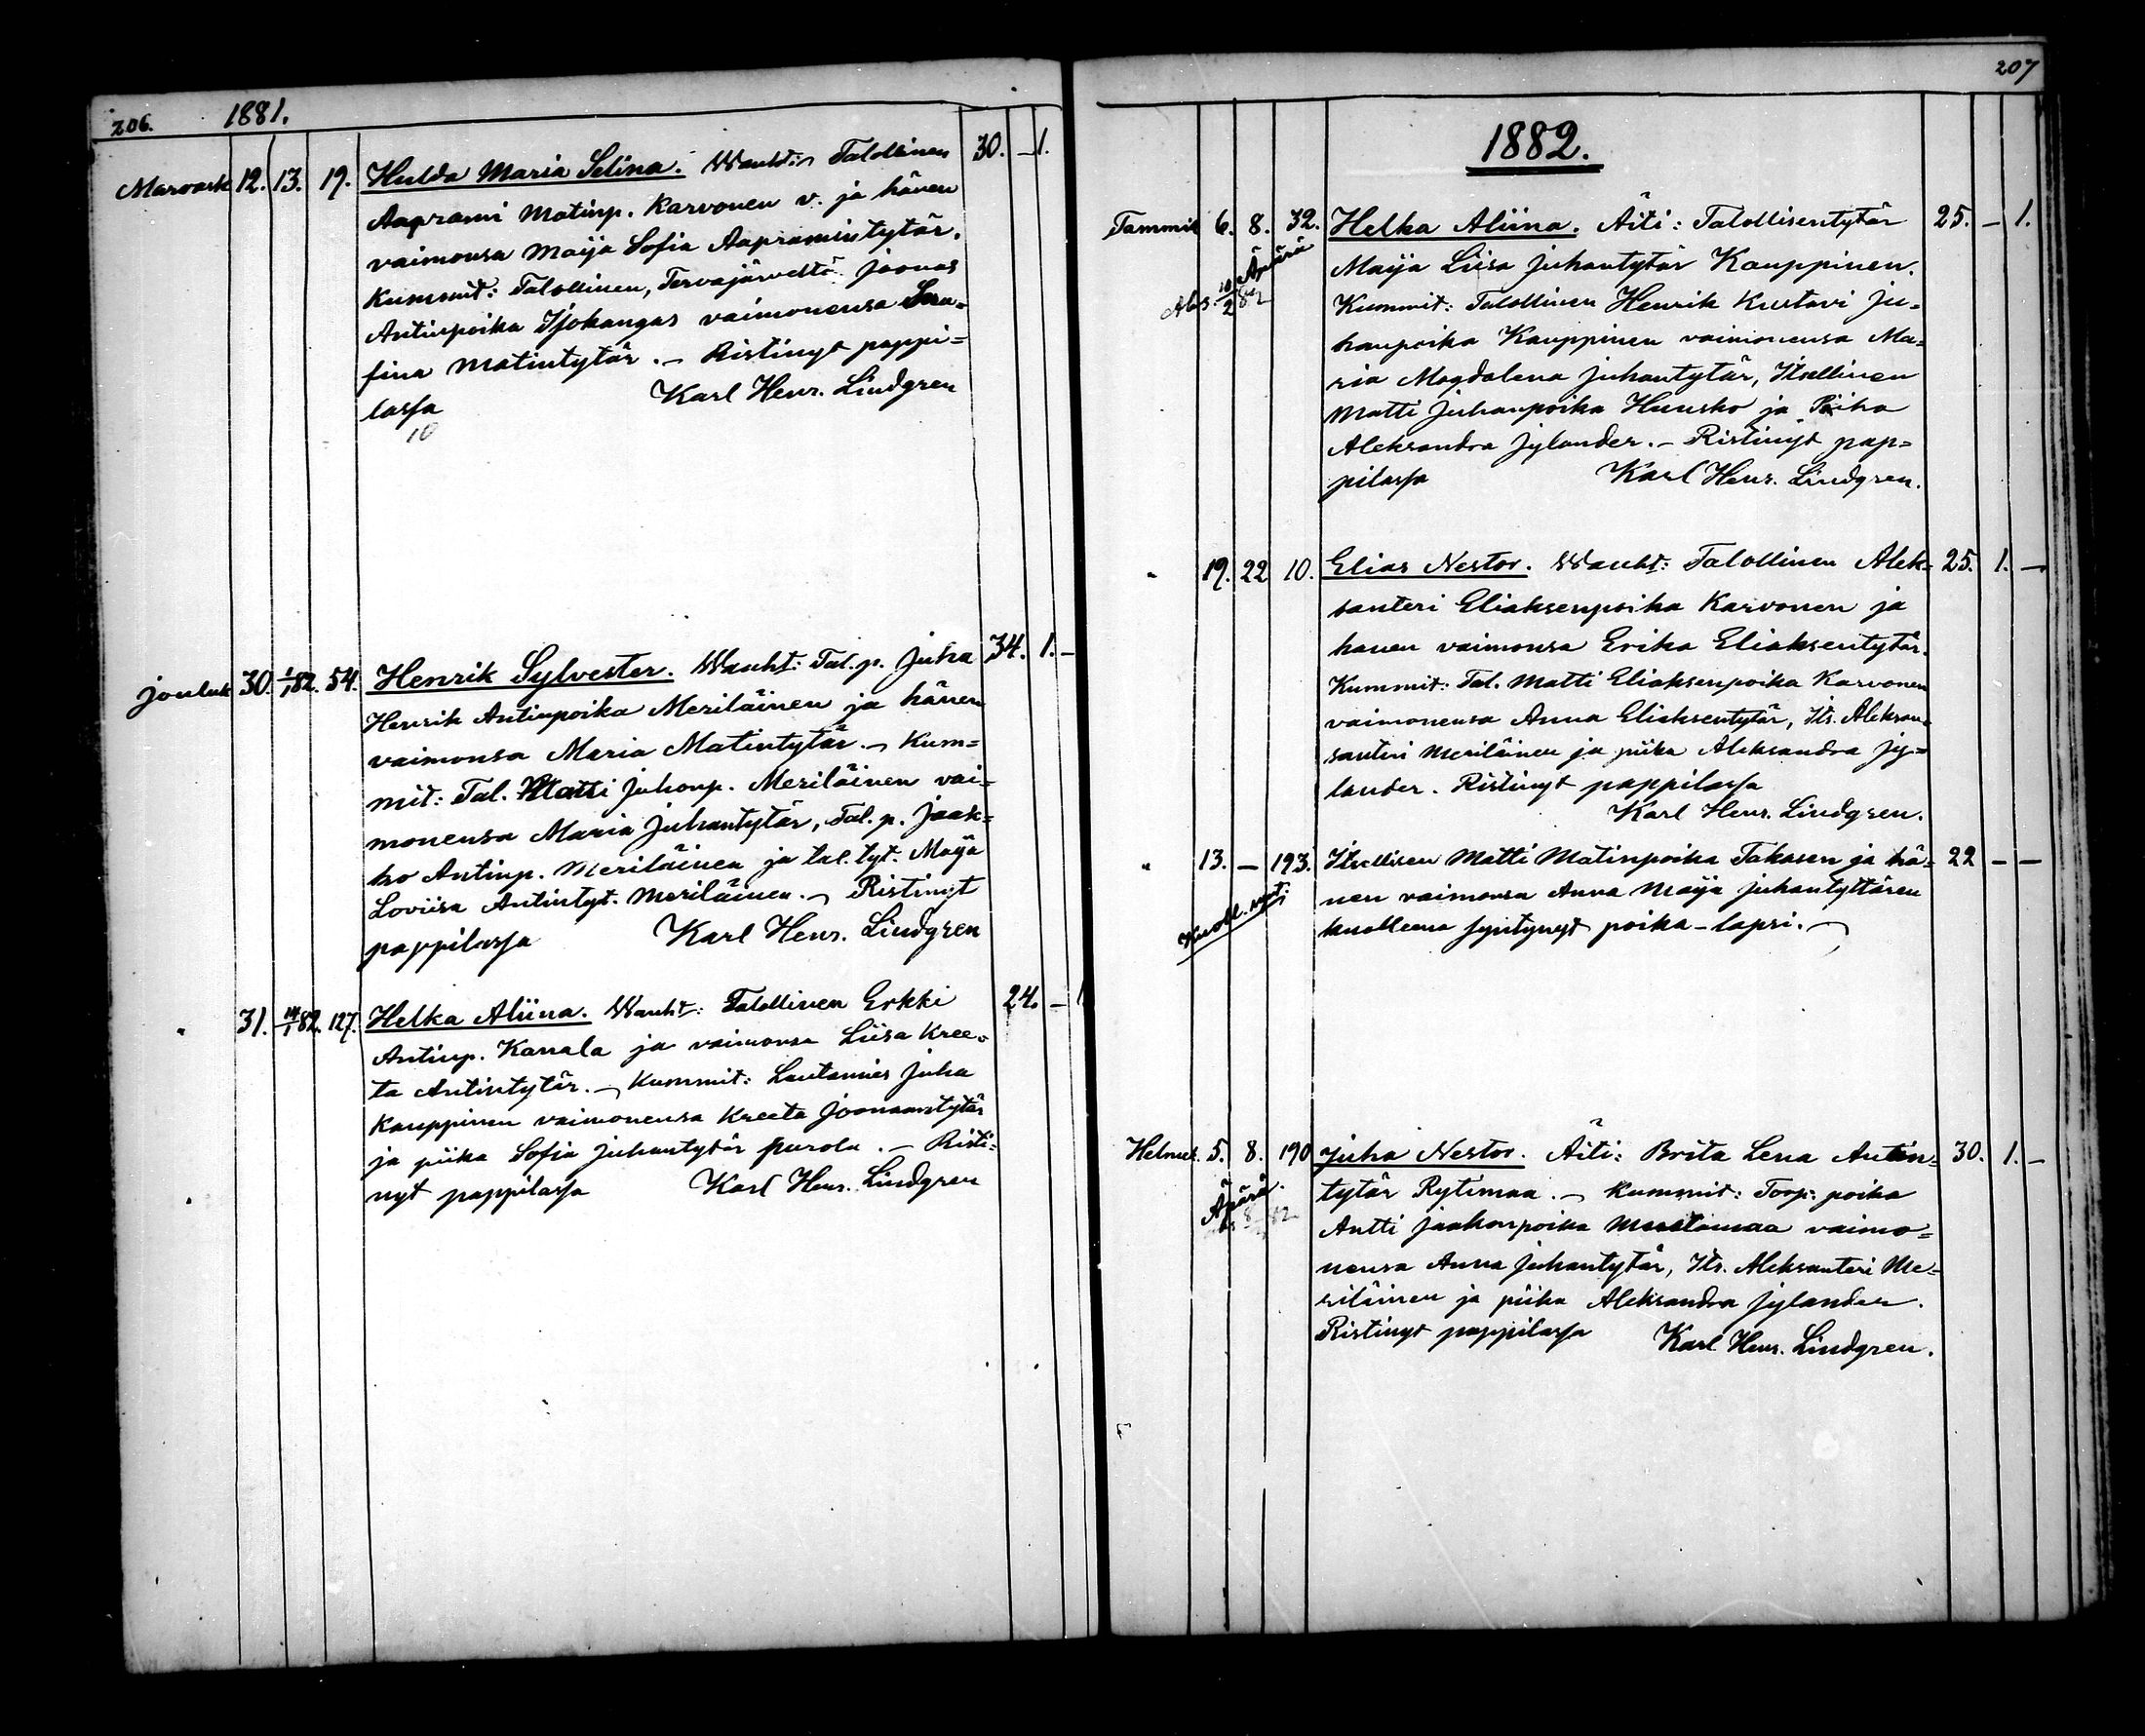 206. 1881.
Marrask 12. 13. 19. Hulda Maria Selina. Wanh: Talollinen 30. – 1.
Aaprami Matinp. Karvonen v. ja hänen
vaimonsa Maija Sofia Aapramintytär.
Kummit: Talollinen, Tervajärveltä Joonas
Antinpoika Isokangas vaimonensa Sera-
fina Matintytär. – Ristinyt pappi=
lassa Karl Henr. Lindgren
10
Jouluk 30. 1/1 82. 54. Henrik Sylvester. Wanht: Tal. p. Juha 34. 1. –
Henrik Antinpoika Meriläinen ja hänen
vaimonsa Maria Matintytär. – Kum=
mit: Tal. Matti Juhonp. Meriläinen vai-
monensa Maria Juhantytär, Tal. p. Jaak=
ko Antinp. Meriläinen ja tal. tyt. Maija
Loviisa Antintyt. Meriläinen. – Ristinyt
pappilassa Karl Henr. Lindgren
" 31. 14/1 82. 127. Helka Aliina. Wanht: Talollinen Erkki 24. – 1
Antinp. Kanala ja vaimonsa Liisa Kree-
ta Antintytär. – Kummit: Lautamies Juha
Kauppinen vaimonensa Kreeta Joonaantytär
ja piika Sofia Juhantytär Purola. – Risti=
nyt pappilassa Karl Henr. Lindgren
207
1882.
Tammik 6. 8. 32. Helka Aliina. Äiti: Talollisentytär 25. – 1.
Äpärä
Maija Liisa Juhantytär Kauppinen.
Abs. 10/2 82
Kummit: Talollinen Henrik Kustavi Ju-
hanpoika Kauppinen vaimonensa Ma=
ria Magdalena Juhantytär, Itsellinen
Matti Juhanpoika Huusko ja Piika
Aleksandra Jylander. – Ristinyt pap=
pilassa Karl Henr. Lindgren.
" 19. 22 10. Elias Nestor. Wanht: Talollinen Alek- 25. 1. –
santeri Eliaksenpoika Karvonen ja
hänen vaimonsa Erika Eliaksentytär.
Kummit: Tal. Matti Eliaksenpoika Karvonen
vaimonensa Anna Eliaksentytär, Its. Aleksan-
santeri Meriläinen ja piika Aleksandra Jy=
lander. Ristinyt pappilassa
Karl Henr. Lindgren.
" 13. – 193. Itsellisen Matti Matinpoika Takasen ja hä= 22 – –
nen vaimonsa Anna Maija Juhantyttären
Kuoll. synt:
kuolleena syntynyt poika-lapsi. –
Helmik. 5. 8. 190 Juha Nestor. Äiti: Brita Lena Antin= 30. 1. –
Äpärä.
tytär Rytimaa. – Kummit: Torp: poika
Antti Jaakonpoika Mustamaa vaimo=
nensa Anna Juhantytär, Its. Aleksanteri Me=
riläinen ja piika Aleksandra Jylander.
Ristinyt pappilassa Karl Henr. Lindgren.